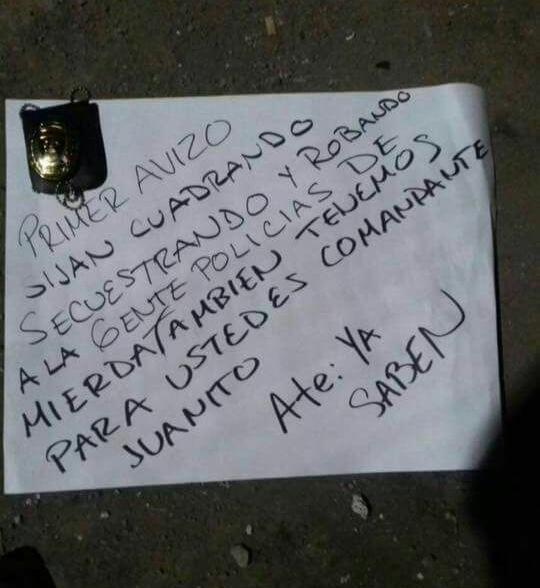 PRIMER AVIZO
SIJAN CUADRANDO
SECUESTRANDO Y ROBANDO
A LA GENTE POLICIAS DE
MIERDA TAMBIEN TENEMOS
PARA USTEDES COMANDANTE
JUANITO
Ate: YA
SABEN